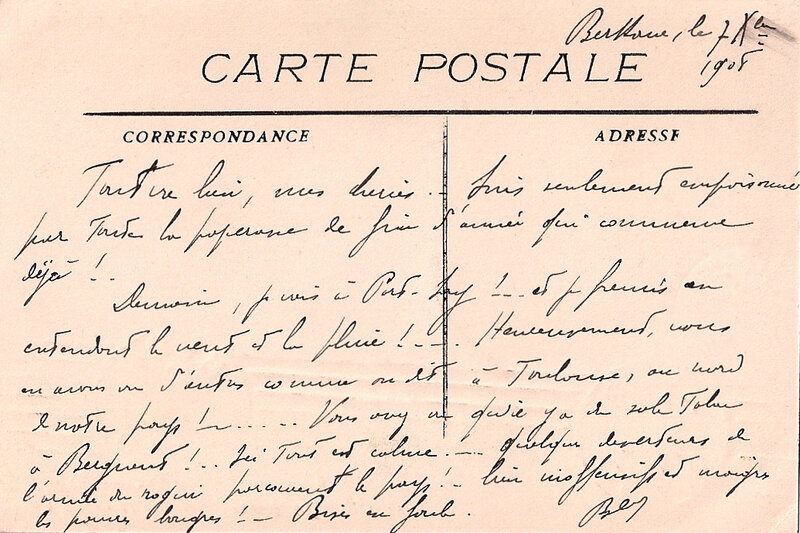 Berkane, le 7 Xbre
1908
CARTE POSTALE
CORRESPONDANCE
ADRESSE
Tout va bien, mes chéries. – Suis seulement empoisonné
par toute la paperasse de fin d'année qui commence
déjà !..
Demain, je vais à Port-Say !... et je frémis en
entendant le vent et la pluie !.... Heureusement, nous
en avons vu d'autres comme on dit à Toulouse, au nord
de notre pays ! ...... Vous avez vu qu'il y a du
à Berguent !... Ici tout est calme. – quelques déserteurs de
l'armée du rogui parcourent le pays ! – bien inoffensifs et maigres
les pauvres bougres ! – Bises en foule.